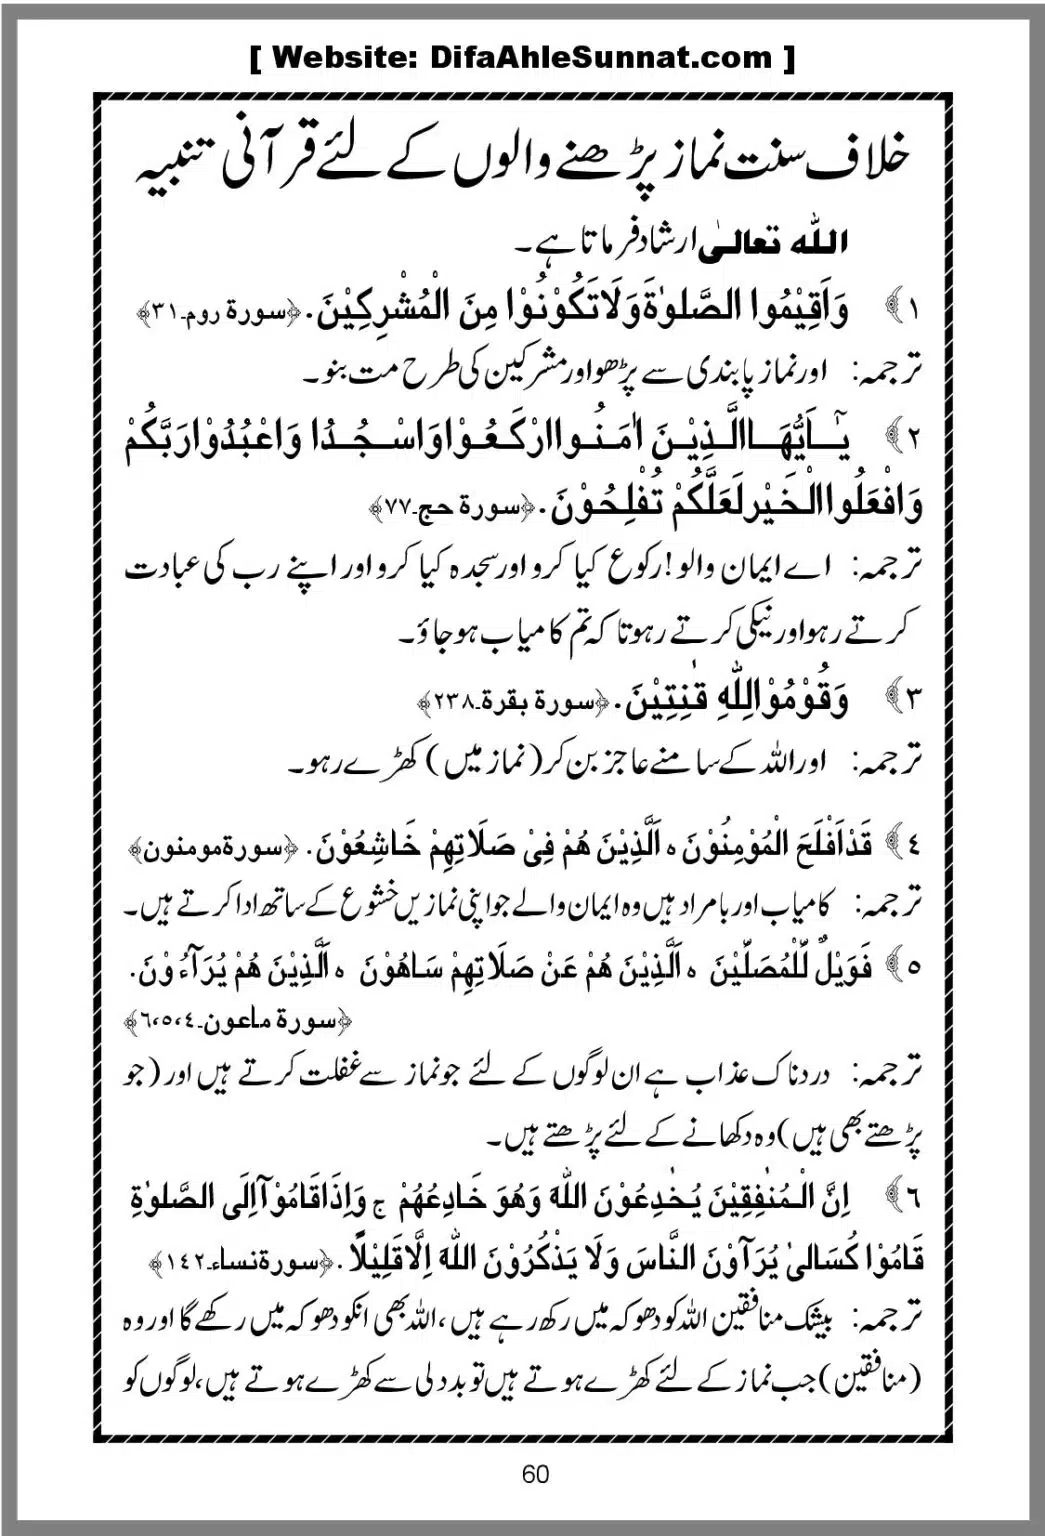 [ Website: DifaAhleSunnat.com ]
خلاف سنت نماز پڑھنے والوں کے لئے قرآنی تنبیہ
اللہ تعالیٰ ارشاد فرماتا ہے۔
۱﴾ وَاَقِيْمُوا الصَّلوٰةَ وَلَا تَكُوْنُوْا مِنَ الْمُشْرِكِيْنَ. ﴿سورۃ روم۔۳۱﴾
ترجمہ: اور نماز پابندی سے پڑھو اور مشرکین کی طرح مت بنو۔
۲﴾ يٰٓاَيُّهَا الَّذِيْنَ اٰمَنُوا ارْكَعُوْا وَاسْجُدُا وَاعْبُدُوْا رَبَّكُمْ
وَافْعَلُوا الْخَيْرَ لَعَلَّكُمْ تُفْلِحُوْنَ. ﴿سورۃ حج۔۷۷﴾
ترجمہ: اے ایمان والو! رکوع کیا کرو اور سجدہ کیا کرو اور اپنے رب کی عبادت
کرتے رہو اور نیکی کرتے رہو تاکہ تم کامیاب ہو جاؤ۔
۳﴾ وَقُوْمُوْا لِلّٰهِ قٰنِتِيْنَ. ﴿سورۃ بقرۃ۔۲۳۸﴾
ترجمہ: اور اللہ کے سامنے عاجز بن کر (نماز میں) کھڑے رہو۔
٤﴾ قَدْ اَفْلَحَ الْمُؤْمِنُوْنَ ه اَلَّذِيْنَ هُمْ فِيْ صَلَاتِهِمْ خَاشِعُوْنَ. ﴿سورۃ مومنون﴾
ترجمہ: کامیاب اور بامراد ہیں وہ ایمان والے جو اپنی نمازیں خشوع کے ساتھ ادا کرتے ہیں۔
٥﴾ فَوَيْلٌ لِّلْمُصَلِّيْنَ ه اَلَّذِيْنَ هُمْ عَنْ صَلَاتِهِمْ سَاهُوْنَ ه اَلَّذِيْنَ هُمْ يُرَآءُوْنَ.
﴿سورۃ ماعون۔٤،٥،٦﴾
ترجمہ: دردناک عذاب ہے ان لوگوں کے لئے جو نماز سے غفلت کرتے ہیں اور (جو
پڑھتے بھی ہیں) وہ دکھانے کے لئے پڑھتے ہیں۔
٦﴾ اِنَّ الْمُنٰفِقِيْنَ يُخٰدِعُوْنَ اللهَ وَهُوَ خَادِعُهُمْ ج وَاِذَا قَامُوْآ اِلَى الصَّلوٰةِ
قَامُوْا كُسَالىٰ يُرَآوْنَ النَّاسَ وَلَا يَذْكُرُوْنَ اللهَ اِلَّا قَلِيْلًا. ﴿سورۃ نساء۔۱٤۲﴾
ترجمہ: بیشک منافقین اللہ کو دھوکہ میں رکھ رہے ہیں، اللہ بھی انکو دھوکہ میں رکھے گا اور وہ
(منافقین) جب نماز کے لئے کھڑے ہوتے ہیں تو بددلی سے کھڑے ہوتے ہیں، لوگوں کو
60